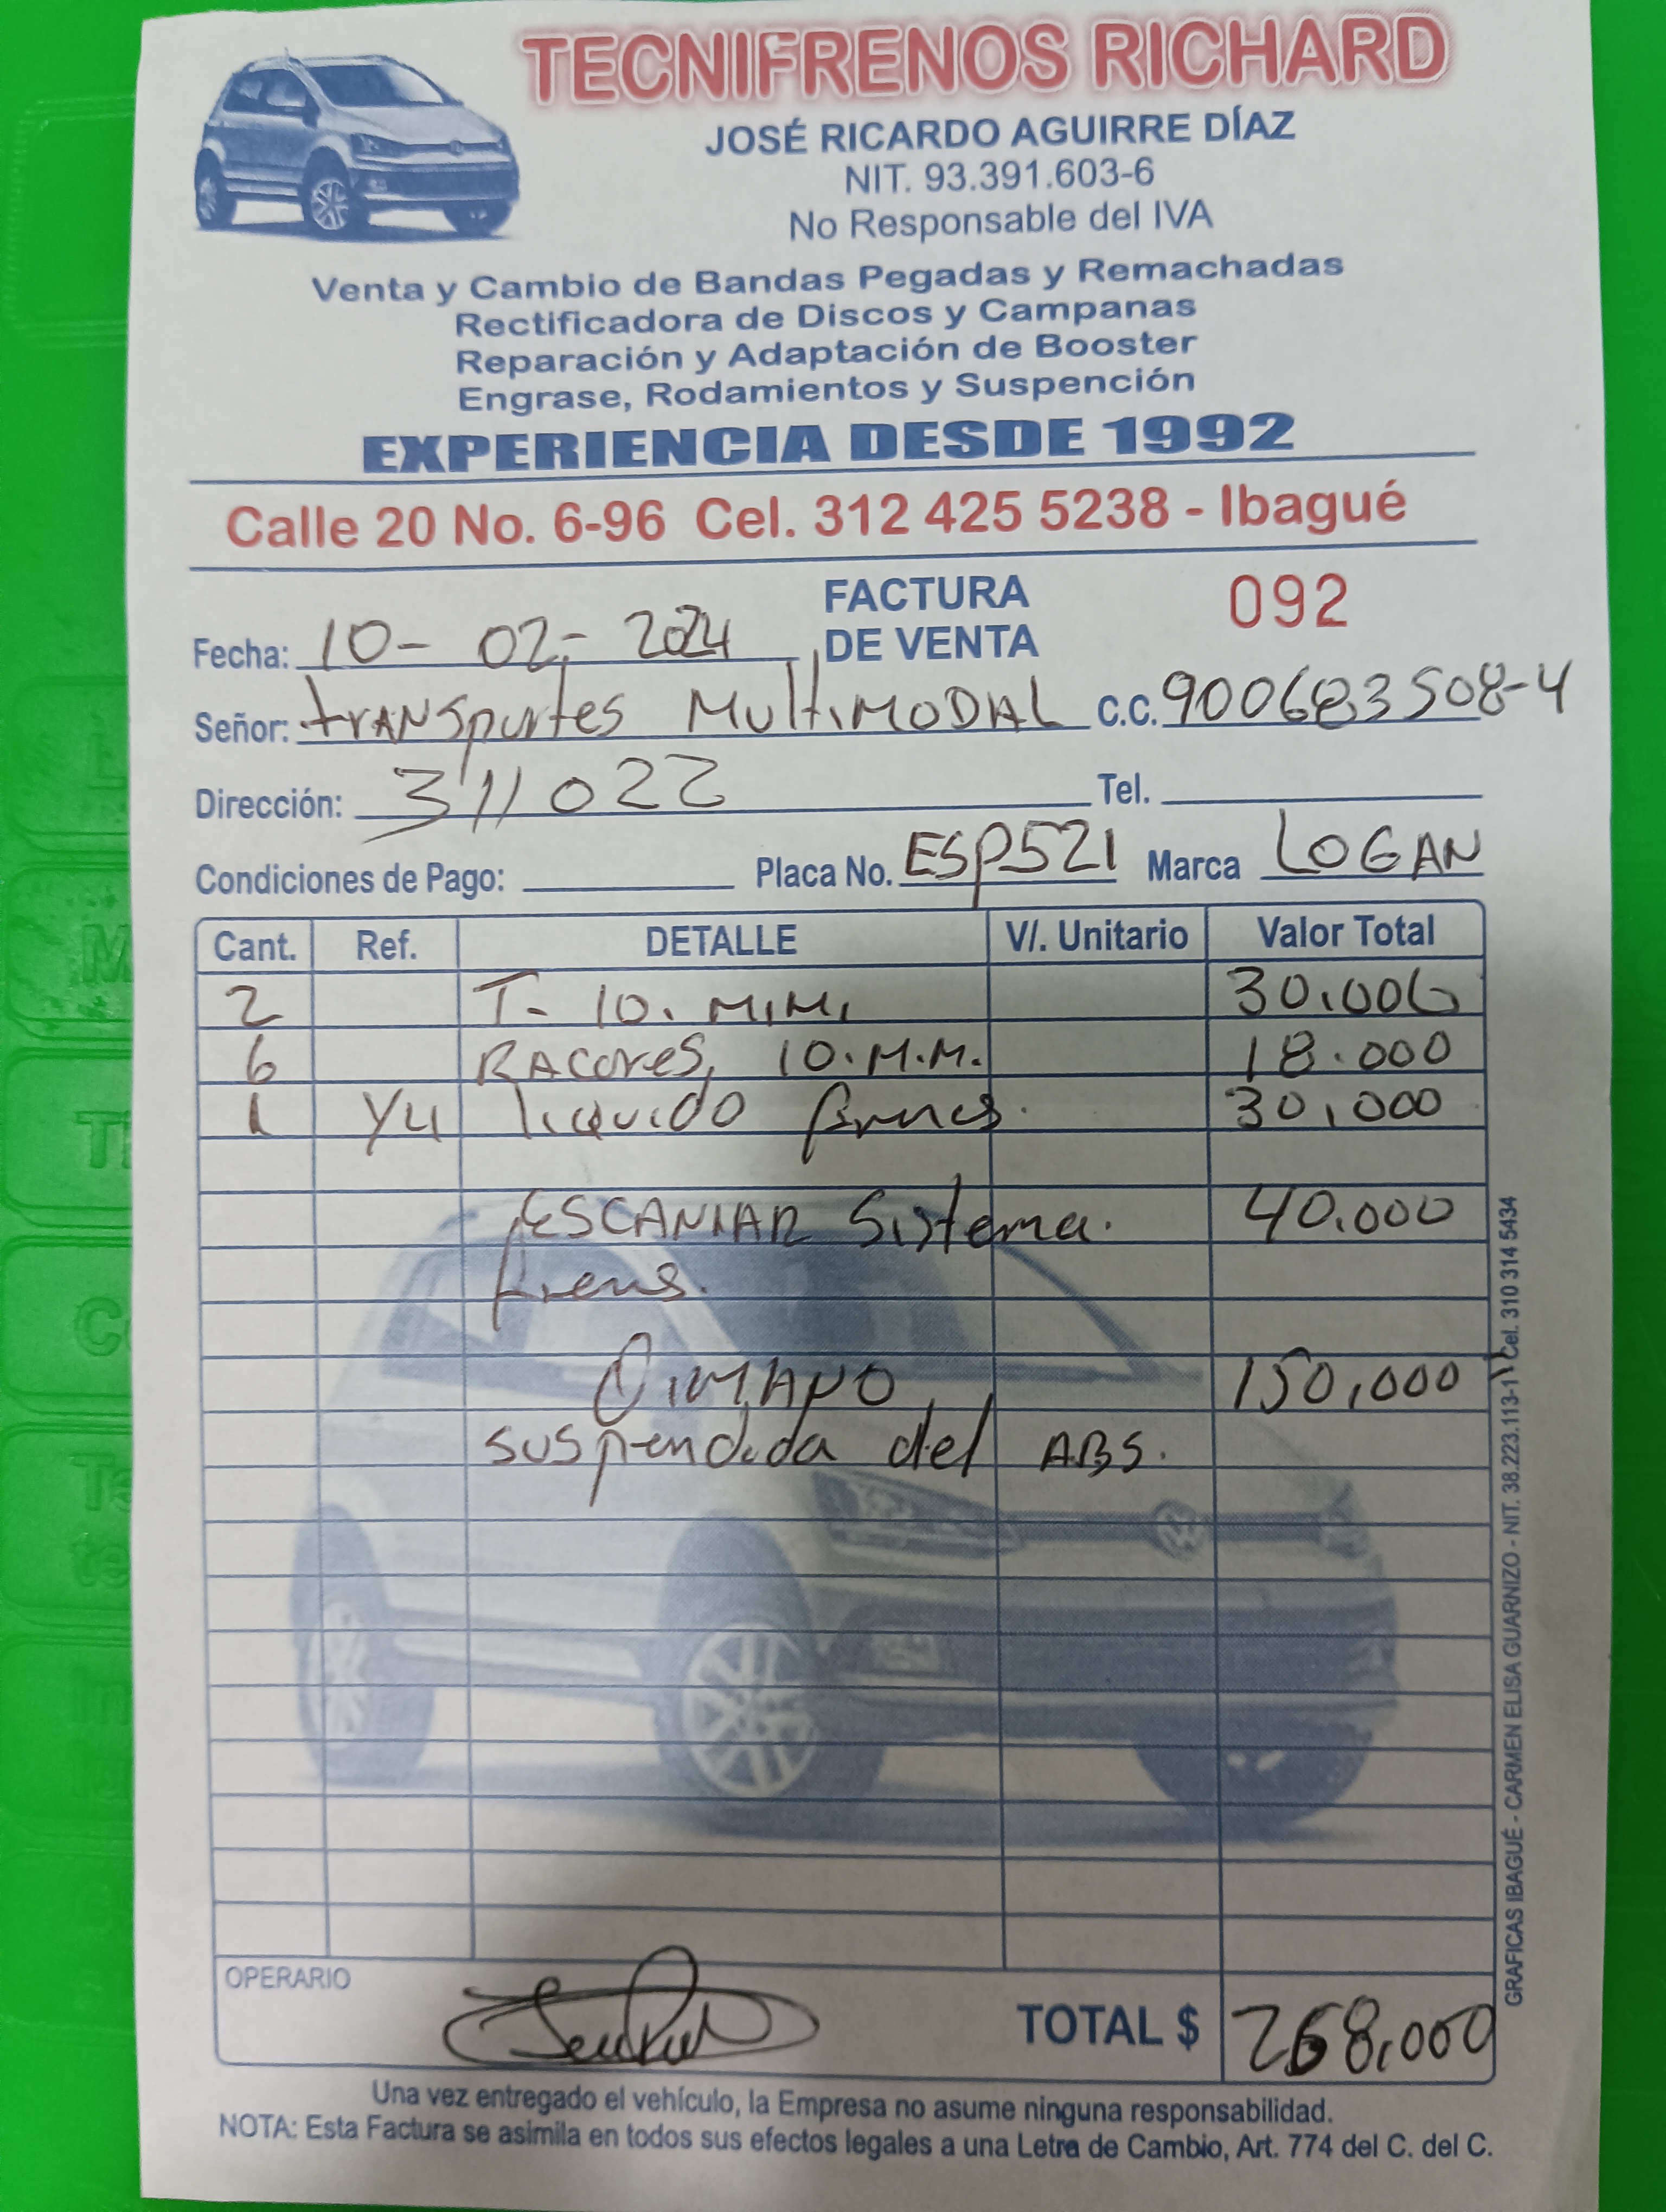 TECNIFRENOS RICHARD
JOSÉ RICARDO AGUIRRE DÍAZ
NIT. 93.391.603-6
No Responsable del IVA
Venta y Cambio de Bandas Pegadas y Remachadas
Rectificadora de Discos y Campanas
Reparación y Adaptación de Booster
Engrase, Rodamientos y Suspención
EXPERIENCIA DESDE 1992
Calle 20 No. 6-96 Cel. 312 425 5238 - Ibagué
FACTURA DE VENTA 092
Fecha: 10-02-2024
Señor: transportes Multimodal C.C. 900683508-4
Dirección: 311022 Tel.
Condiciones de Pago: Placa No. ESP521 Marca LOGAN
Cant. Ref. DETALLE V/. Unitario Valor Total
2 T- 10. M.M. 30.000
6 RACores, 10.M.M. 18.000
1 Y4 liquido frenos. 30,000
ESCANIAR Sistema. 40.000
frenos.
MANO 150,000
suspendida del ABS.
OPERARIO TOTAL $ 268,000
Una vez entregado el vehículo, la Empresa no asume ninguna responsabilidad.
NOTA: Esta Factura se asimila en todos sus efectos legales a una Letra de Cambio, Art. 774 del C. del C.
GRAFICAS IBAGUÉ - CARMEN ELISA GUARNIZO - NIT. 38.223.113-1 Cel. 310 314 5434